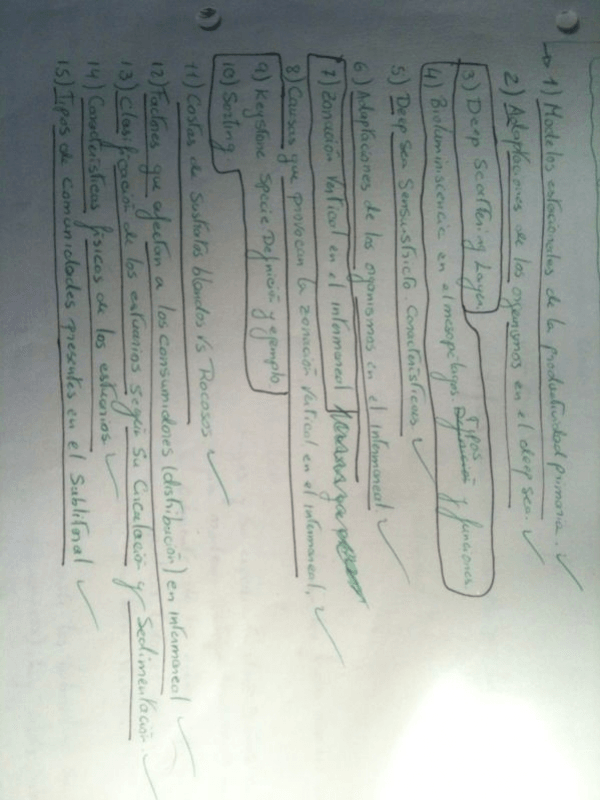 → 1) Modelos estacionales de la productividad primaria. ✓
2) Adaptaciones de los organismos en el deep sea. ✓
3) Deep Scattering Layer
4) Bioluminiscencia en el mesopelágico. Tipos y funciones
5) Deep sea Sensustricto. Características ✓
6) Adaptaciones de los organismos en el intermareal ✓
7) Zonación vertical en el intermareal
8) Causas que provocan la zonación vertical en el intermareal. ✓
9) Keystone Specie Definición y ejemplo
10) Sorting
11) Costas de Sustratos blandos Vs Rocosos ✓
12) Factores que afectan a los consumidores (distribución) en intermareal ✓
13) Clasificación de los estuarios según su Circulación y Sedimentación. ✓
14) Características físicas de los estuarios ✓
15) Tipos de comunidades presentes en el Sublitoral ✓